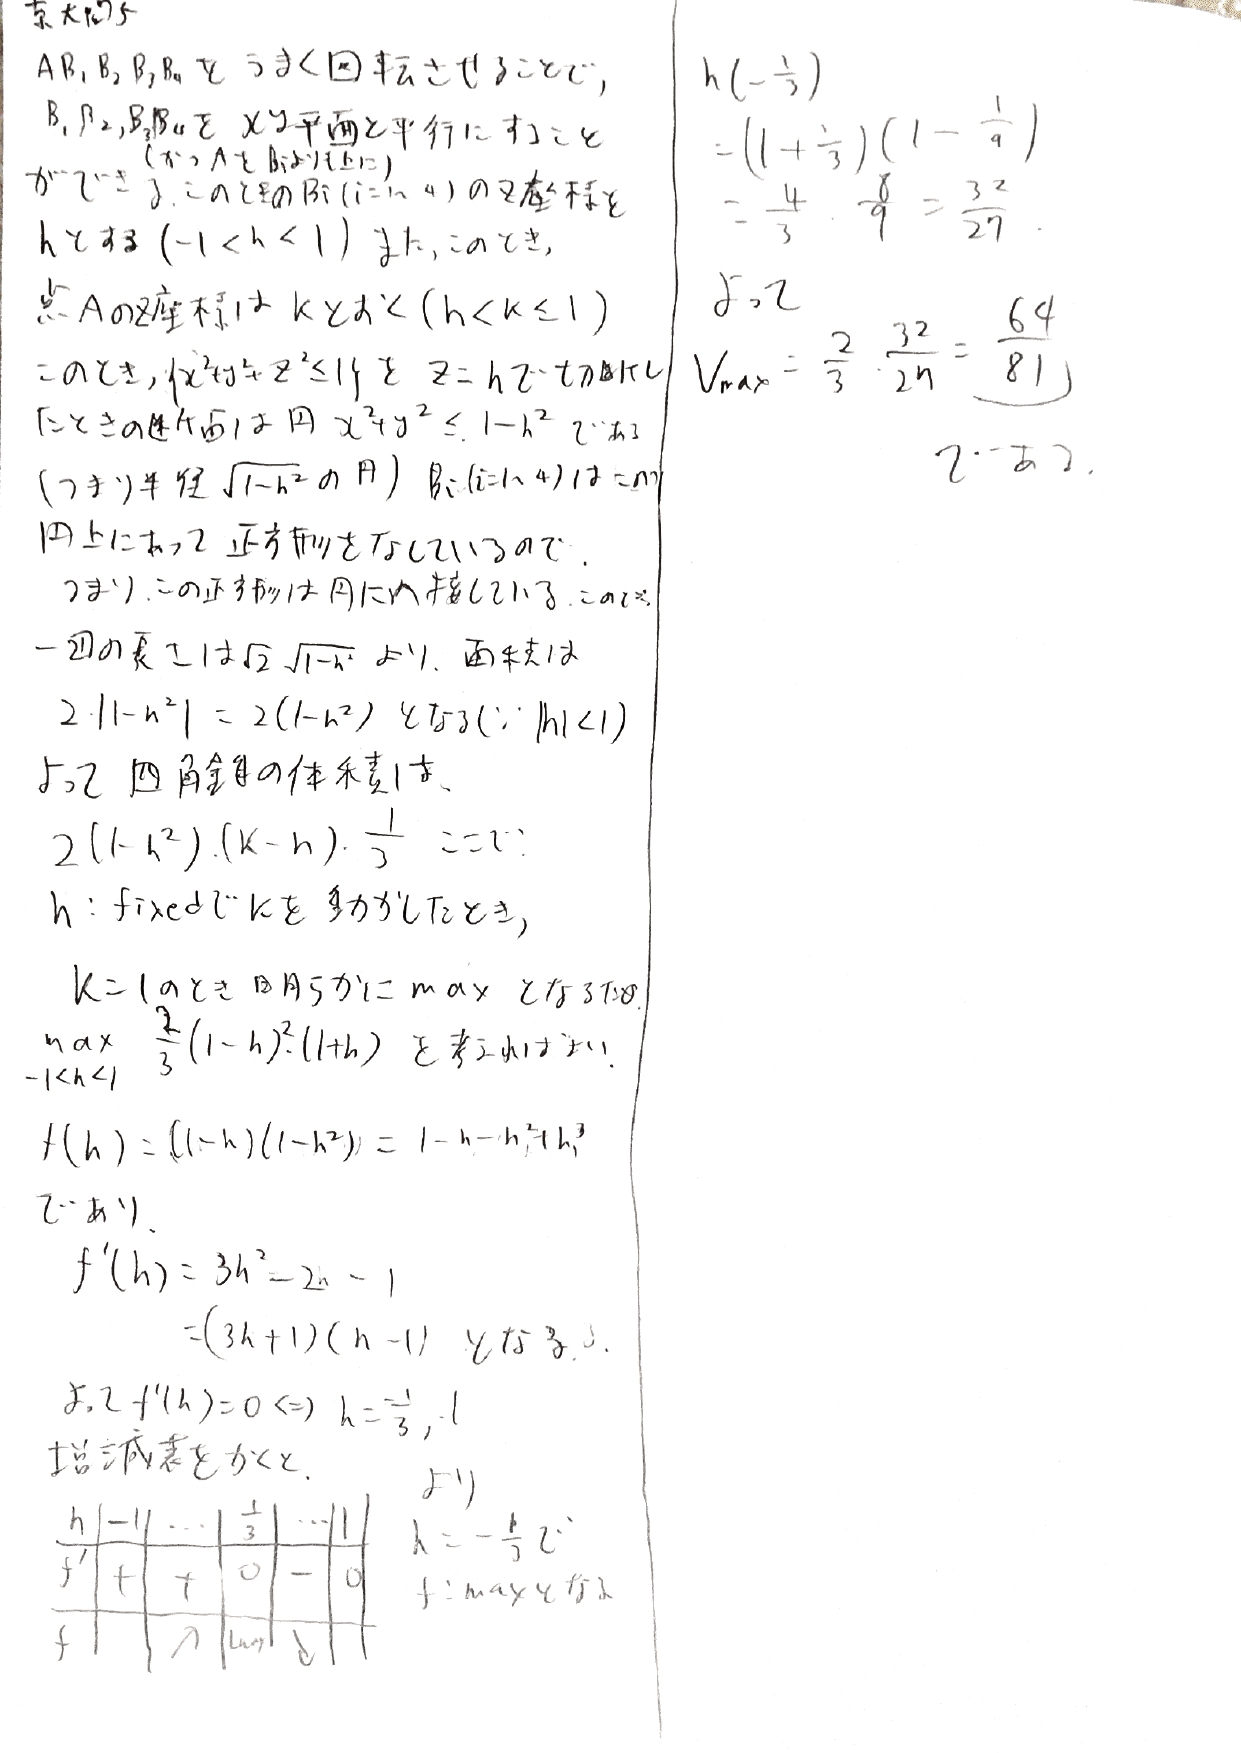 京大 問5
AB₁B₂B₃B₄を うまく回転させることで,
B₁B₂,B₃B₄を xy平面と平行にすること
(かつAをBiよりも上に)
ができる.このときのBi(i=1~4)のz座標を
hとする(-1<h<1) また,このとき,
点Aのz座標は kとおく(h<k≤1)
このとき,{x²+y²+z²≤1}を z=hで切断し
たときの断面は円 x²+y²≤1-h² である
(つまり半径√1-h²の円) Bi(i=1~4)はこの
円上にあって 正方形をなしているので.
つまり.この正方形は円に内接している.このとき
一辺の長さは√2 √1-h² より. 面積は
2・|1-h²| = 2(1-h²) となる(∵ |h|<1)
よって 四角錐の体積は、
2(1-h²)・(k-h)・1/3 ここで.
h:fixedでkを動かしたとき,
k=1のとき明らかに max となるため.
max 2/3 (1-h)²・(1+h) を考えればよい.
-1<h<1
f(h) = (1-h)(1-h²) = 1-h-h²+h³
であり.
f'(h) = 3h²-2h-1
=(3h+1)(h-1) となる.
よって f'(h)=0 <=> h=-1/3, 1
増減表をかくと.
h -1 ... 1/3 ... 1
f' + + 0 - 0
f ↗ ↘
より
h = -1/3 で
f:maxとなる
h(-1/3)
=(1+1/3)(1-1/9)
= 4/3 ・ 8/9 = 32/27.
よって
Vmax = 2/3 ・ 32/27 = 64/81
である.